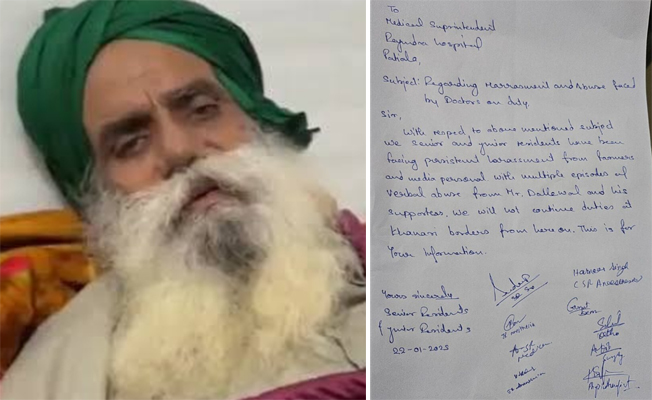 To
Medical Suprintendent
Rajindra Hospital
Patiala,
Subject: Regarding Harrasment and Abuse faced
by Doctors on duty.
Sir,
With respect to above mentioned subject
we Senior and junior residents have been
facing persistent harassment from farmers
and media personal with multiple episodes of
verbal abuse from Mr. Dallewal and his
supporters. We will not continue duties at
Khanauri borders from here on. This is for
Your Information.
Yours sincerely
Senior Residents
& Junior Residents
22-01-2025
Singh
CSR
Medicine